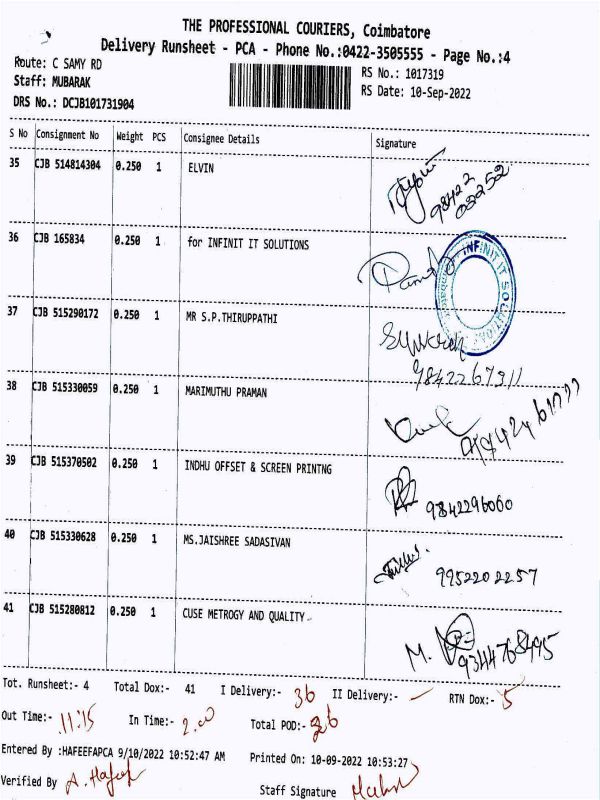 THE PROFESSIONAL COURIERS, Coimbatore
Delivery Runsheet - PCA - Phone No.:0422-3505555 - Page No.:4
Route: C SAMY RD
RS No.: 1017319
Staff: MUBARAK
RS Date: 10-Sep-2022
DRS No.: DCJB101731904
S No Consignment No Weight PCS Consignee Details Signature
35 CJB 514814304 0.250 1 ELVIN
98422
03252
36 CJB 165834 0.250 1 for INFINIT IT SOLUTIONS
INFINIT IT SOLUTIONS
37 CJB 515290172 0.250 1 MR S.P.THIRUPPATHI
9842267311
38 CJB 515330059 0.250 1 MARIMUTHU PRAMAN
39 CJB 515370502 0.250 1 INDHU OFFSET & SCREEN PRINTNG
9842296060
40 CJB 515330628 0.250 1 MS.JAISHREE SADASIVAN
9952202257
41 CJB 515280812 0.250 1 CUSE METROGY AND QUALITY
M.
9344768495
Tot. Runsheet:- 4 Total Dox:- 41 I Delivery:- 36 II Delivery:- — RTN Dox:- 5
Out Time:- 11:15 In Time:- 2.00 Total POD:- 36
Entered By :HAFEEFAPCA 9/10/2022 10:52:47 AM Printed On: 10-09-2022 10:53:27
Verified By A. Hafeef Staff Signature